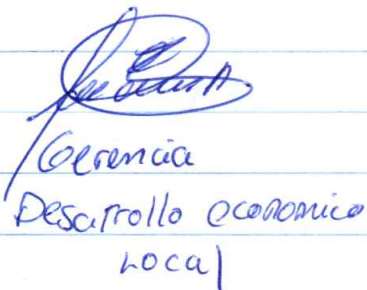 Gerencia
Desarrollo economico
Local